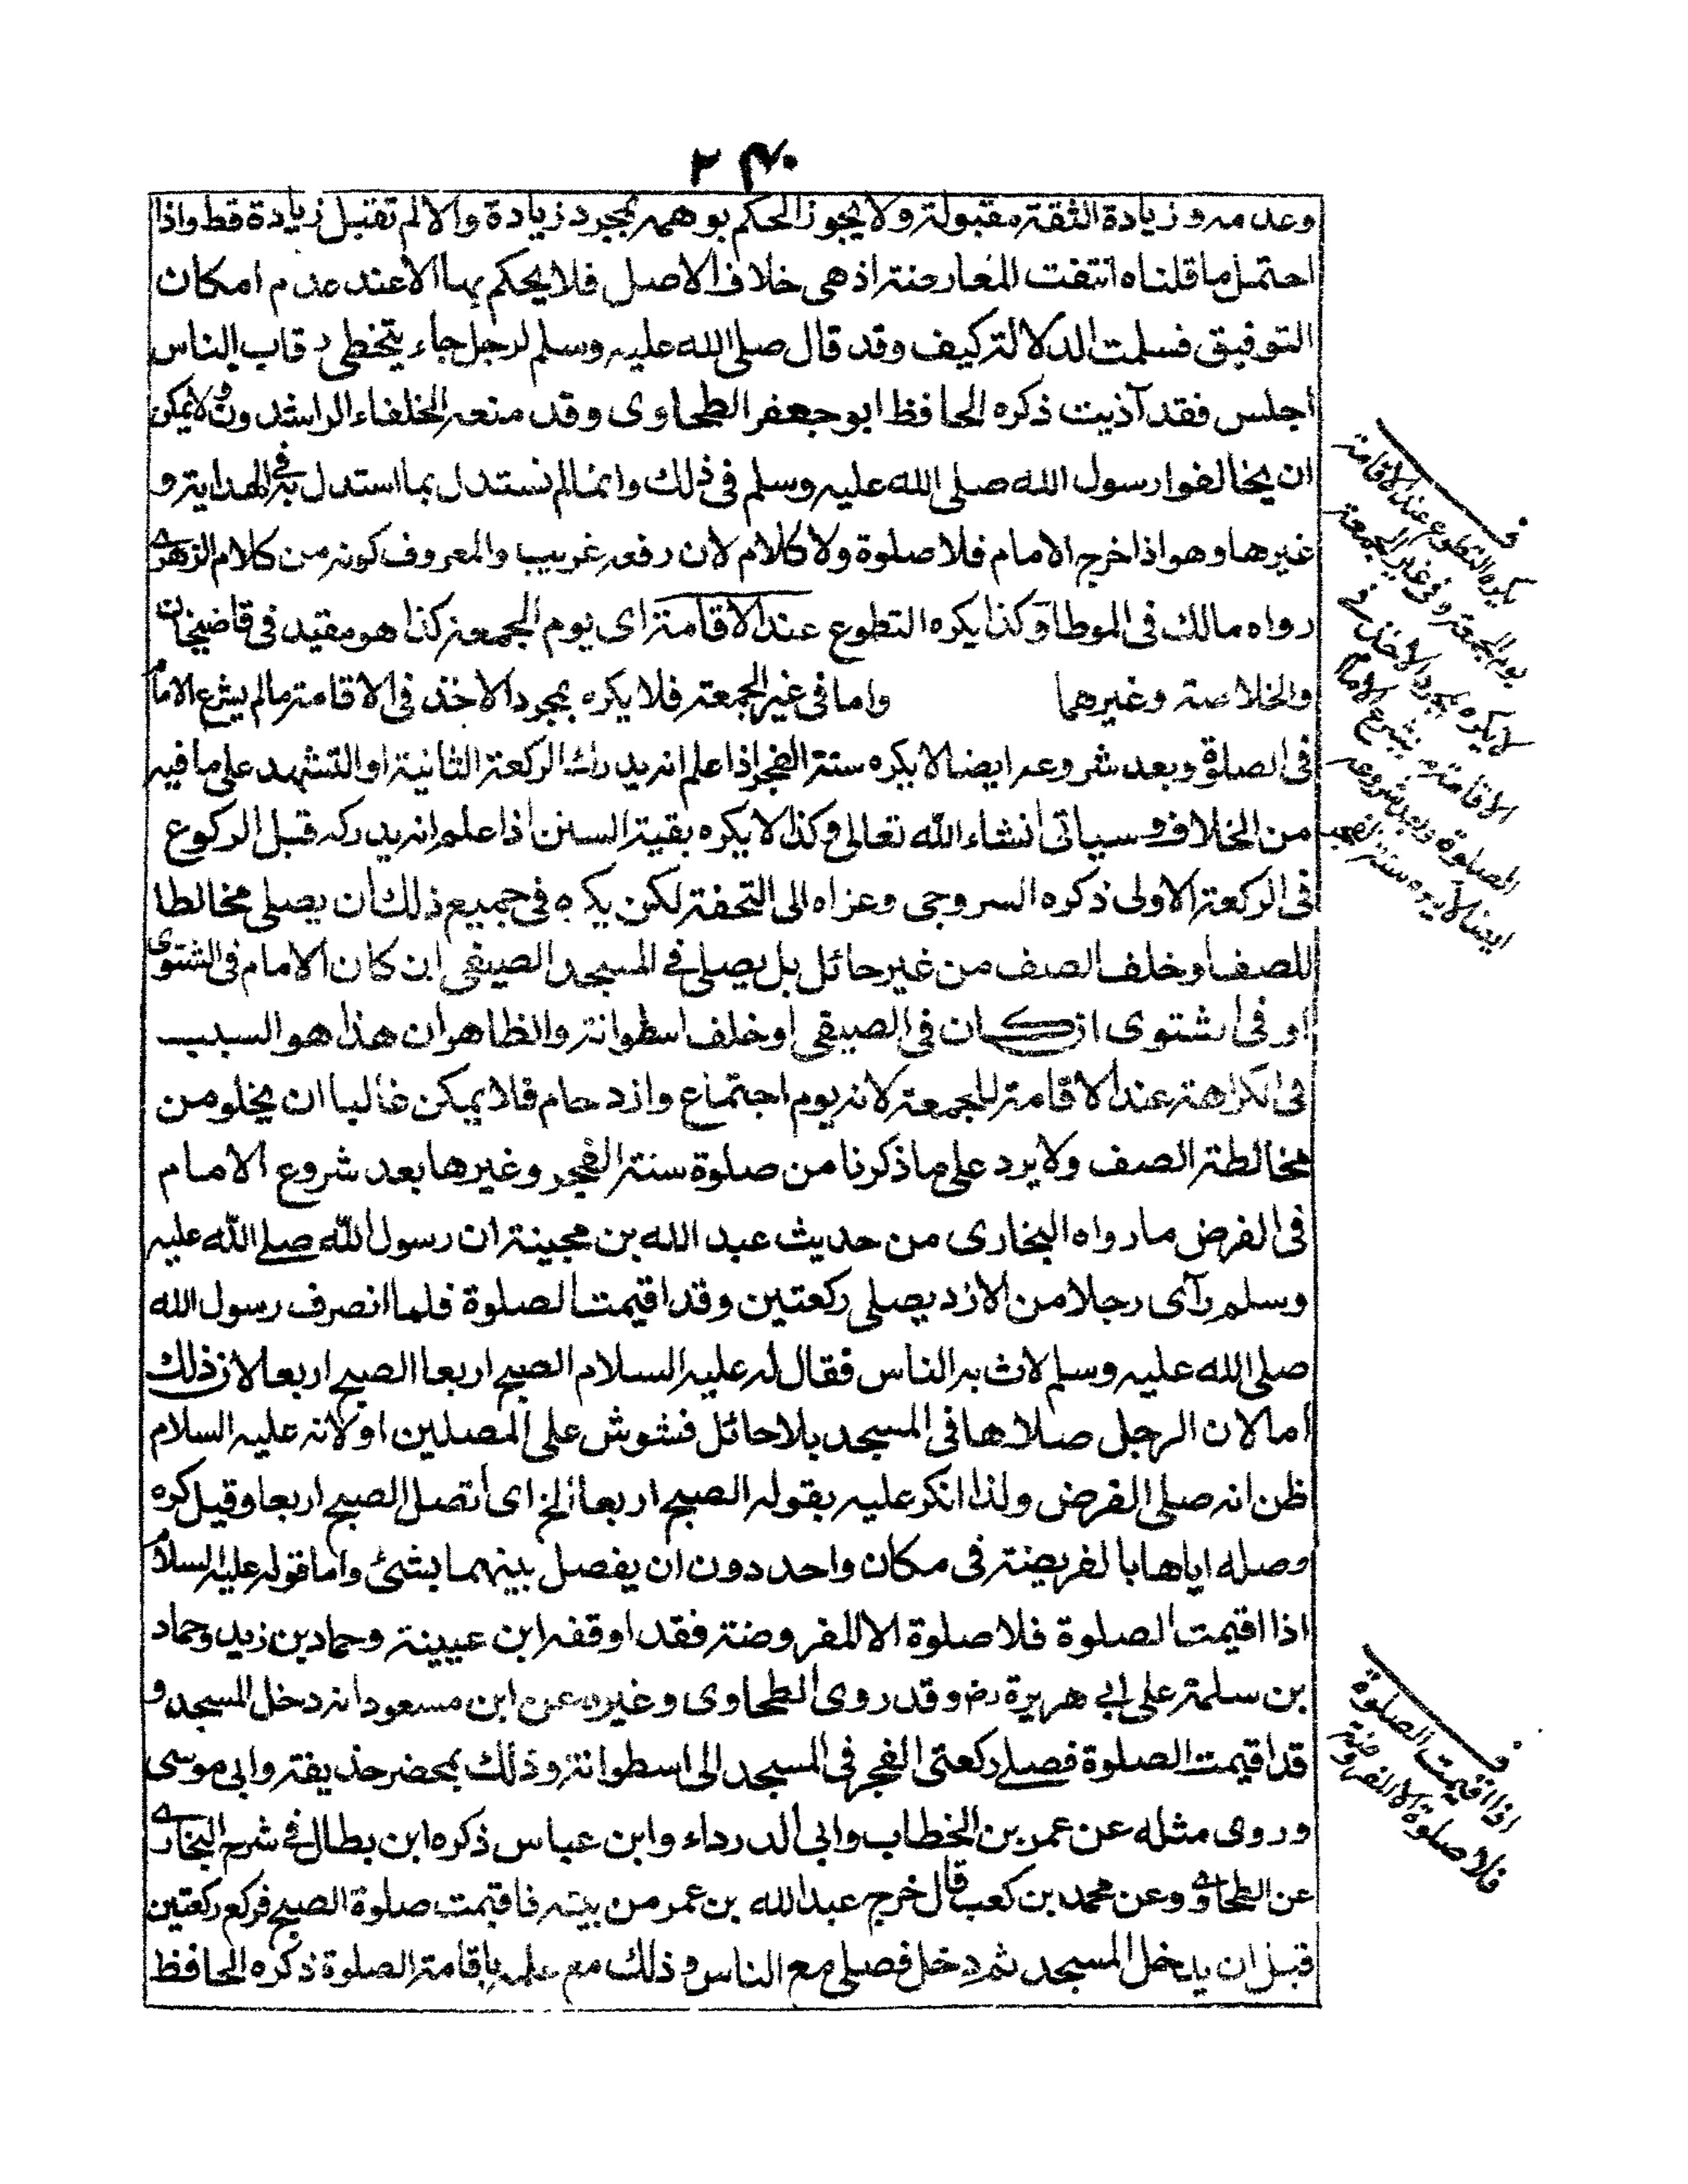 ۲۴۰
وعدمه وزيادة الثقة مقبولة ولا يجوز الحكم بوهمه بمجرد زيادة والا لم تقبل زيادة قط واذا
احتمل ما قلناه انتفت المعارضة اذ هى خلاف الاصل فلا يحكم بها الا عند عدم امكان
التوفيق فسلمت الدلالة كيف وقد قال صلى الله عليه وسلم لرجل جاء يتخطى رقاب الناس
اجلس فقد آذيت ذكره الحافظ ابو جعفر الطحاوى وقد منعه الخلفاء الراشدون ولا يمكن
ان يخالفوا رسول الله صلى الله عليه وسلم فى ذلك وانما لم نستدل بما استدل به فى الهداية و
غيرها وهو اذا خرج الامام فلا صلوة ولا كلام لان رفعه غريب والمعروف كونه من كلام الزهرى
رواه مالك فى الموطا وكذا يكره التطوع عند الاقامة اى يوم الجمعة كذا هو مقيد فى قاضيخان
والخلاصة وغيرهما واما فى غير الجمعة فلا يكره بمجرد الاخذ فى الاقامة ما لم يشرع الامام
فى الصلوة وبعد شروعه ايضا لا يكره سنة الفجر اذا علم انه يدرك الركعة الثانية او التشهد على ما فيه
من الخلاف وسياتى انشاء الله تعالى وكذا لا يكره بقية السنن اذا علم انه يدركه قبل الركوع
فى الركعة الاولى ذكره السروجى وعزاه الى التحفة لكن يكره فى جميع ذلك ان يصلى مخالطا
للصف او خلف الصف من غير حائل بل يصلى فى المسجد الصيفى ان كان الامام فى الشتوى
او فى الشتوى ان كان فى الصيفى او خلف اسطوانة والظاهر ان هذا هو السبب
فى الكراهة عند الاقامة للجمعة لانه يوم اجتماع وازدحام فلا يمكن غالبا ان يخلو من
مخالطة الصف ولا يرد على ما ذكرنا من صلوة سنة الفجر وغيرها بعد شروع الامام
فى الفرض ما رواه البخارى من حديث عبد الله بن مجينة ان رسول الله صلى الله عليه
وسلم رآى رجلا من الازد يصلى ركعتين وقد اقيمت الصلوة فلما انصرف رسول الله
صلى الله عليه وسلم لاث به الناس فقال له عليه السلام الصبح اربعا الصبح اربعا لان ذلك
اما لان الرجل صلاها فى المسجد بلا حائل فشوش على المصلين او لانه عليه السلام
ظن انه صلى الفرض ولذا انكر عليه بقوله الصبح اربعا الخ اى أتصل الصبح اربعا وقيل كره
وصله اياها بالفريضة فى مكان واحد دون ان يفصل بينهما بشئ واما قوله عليه السلام
اذا اقيمت الصلوة فلا صلوة الا المفروضة فقد اوقفه ابن عيينة وحماد بن زيد وحماد
بن سلمة على ابى هريرة رض وقد روى الطحاوى وغيره عن ابن مسعود انه دخل المسجد و
قد اقيمت الصلوة فصلى ركعتى الفجر فى المسجد الى اسطوانة وذلك بمحضر حذيفة وابى موسى
وروى مثله عن عمر بن الخطاب وابى الدرداء وابن عباس ذكره ابن بطال فى شرح البخارى
عن الطحاوى وعن محمد بن كعب قال خرج عبد الله بن عمر من بيته فاقيمت صلوة الصبح فركع ركعتين
قبل ان يدخل المسجد ثم دخل فصلى مع الناس وذلك مع علمه باقامة الصلوة ذكره الحافظ
ف
يكره التطوع عند الاقامة
يوم الجمعة وفى غير الجمعة
لا يكره بمجرد الاخذ فى
الاقامة يشرع الامام
الصلوة وبعد شروعه
ايضا لا يكره سنة الفجر
ف
اذا اقيمت الصلوة
فلا صلوة الا المفروضة